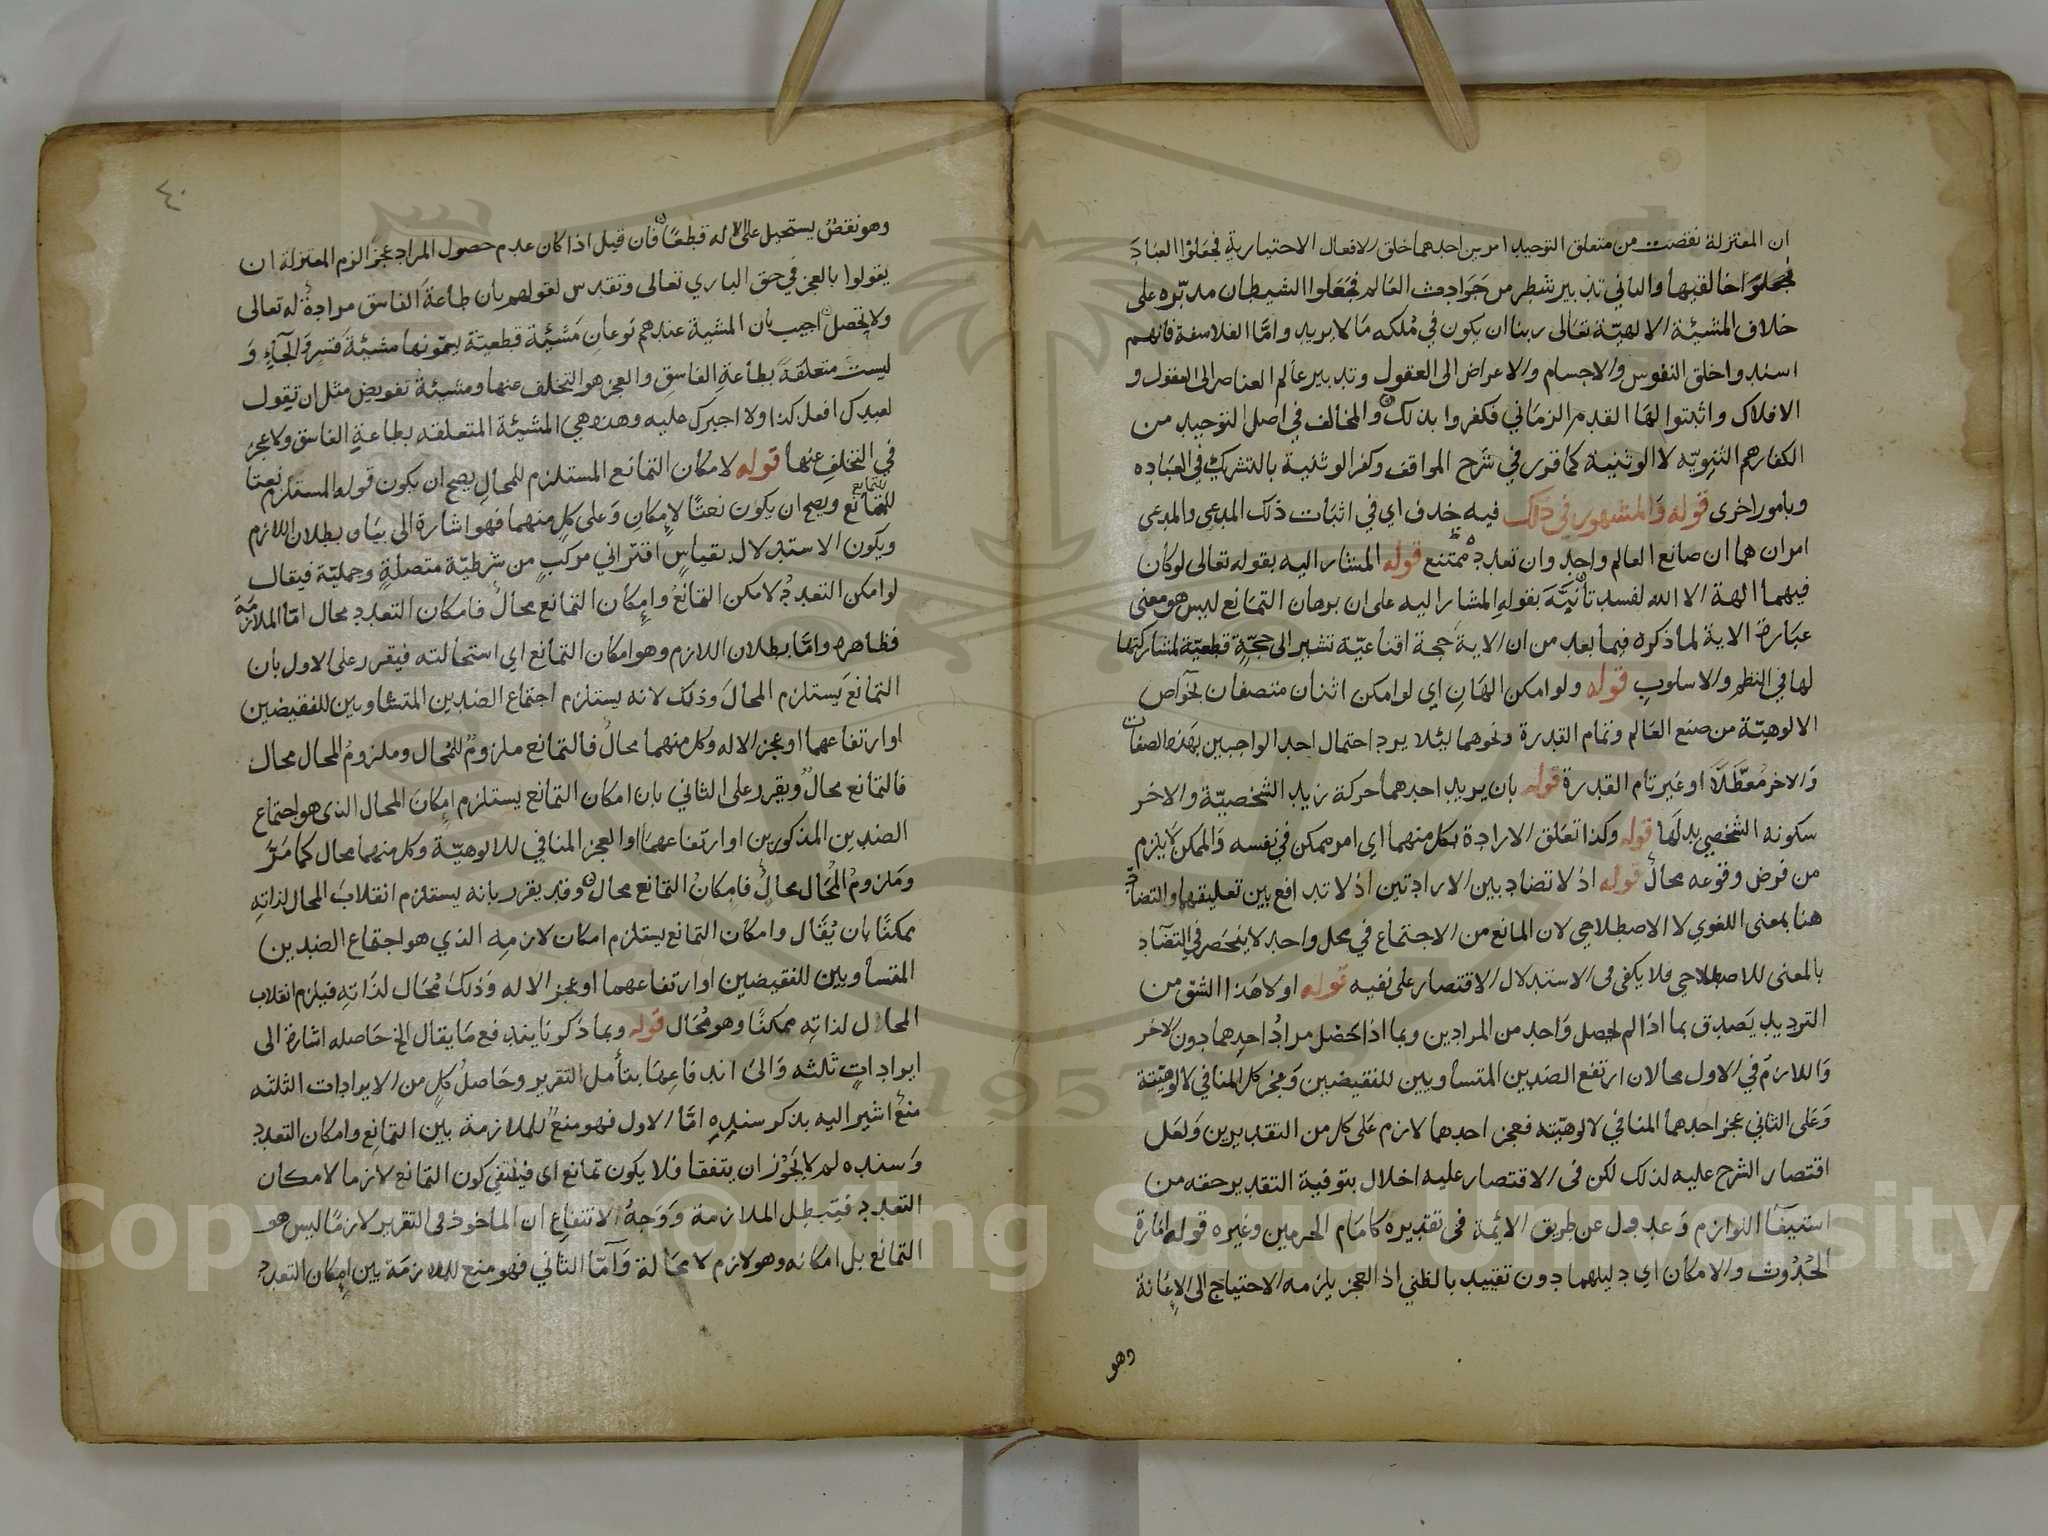 ان المعتزلة نقضت من متعلق التوحيد امرين احدهما خلق الافعال الاختيارية فجعلوا العباد
فجعلوا خالقيها والثاني تدبير شطر من حوادث العالم فجعلوا الشيطان مدبره على
خلاف المشيئة الالهية تعالى ربنا ان يكون في ملكه ما لا يريد واما الفلاسفة فانهم
اسندوا خلق النفوس والاجسام والاعراض الى العقول وتدبير عالم العناصر الى العقول و
الافلاك واثبتوا لها القدم الزماني فكفروا بذلك والمخالف في اصل التوحيد من
الكفار هم الثنويه لا الوثنيه كما قرر في شرح المواقف وكفر الوثنية بالتشريك في العباده
وبامور اخرى قوله والمشهور في ذلك فيه حذف اي في اثبات ذلك المدعى والمدعى
امران هما ان صانع العالم واحد وان تعدده ممتنع قوله المشار اليه بقوله تعالى لو كان
فيهما الهة الا الله لفسدتا نبه بقوله المشار اليه على ان برهان التمانع ليس هو معنى
عبارة الاية لما ذكره فيما بعد من ان الاية حجة اقناعية تشير الى حجة قطعية لمشاركتها
لها في النظم والاسلوب قوله ولو امكن الهان اي لو امكن اثنان متصفان بخواص
الالوهية من صنع العالم وتمام القدرة ونحوهما لئلا يرد احتمال احد الواجبين بهذه الصفات
والاخر معطلا او غير تام القدرة قوله بان يريد احدهما حركة زيد الشخصية والاخر
سكونه الشخصي بدلها قوله وكذا تعلق الارادة بكل منهما اي امر ممكن في نفسه والممكن لا يلزم
من فرض وقوعه محال قوله اذ لا تضاد بين الارادتين اذ لا تدافع بين تعليقهما والتضاد
هنا بمعنى اللغوي لا الاصطلاحي لان المانع من الاجتماع في محل واحد لا ينحصر في التضاد
بالمعنى للاصطلاحي فلا يكفى فى الاستدلال الاقتصار على نفيه قوله او لا هذا الشق من
الترديد يصدق بما اذا لم يحصل واحد من المرادين وبما اذا حصل مراد احدهما دون الاخر
واللازم في الاول محالان ارتفع الضدين المتساويين للنقيضين وعجز كل المنافي لالوهيته
وعلى الثاني عجز احدهما المنافي لالوهيته فعجز احدهما لازم على كل من التقديرين ولعل
اقتصار الشرح عليه لذلك لكن فى الاقتصار عليه اخلال بتوفية التقدير حقه من
استيفا اللوازم وعدول عن طريق الائمة فى تقديره كامام الحرمين وغيره قوله امارة
الحدوث والامكان اي دليلهما دون تقييد بالظني اذ العجز يلزمه الاحتياج الى الاعانة
وهو
٤٠
وهو نقص يستحيل على الاله قطعا فان قيل اذا كان عدم حصول المراد عجزا لزم المعتزلة ان
يقولوا بالعجز في حق الباري تعالى وتقدس لقولهم بان طاعة الفاسق مرادة له تعالى
ولا تحصل اجيب بان المشية عندهم نوعان مشيئة قطعية يسمونها مشيئة قسر والجاء و
ليست متعلقة بطاعة الفاسق والعجز هو التخلف عنها ومشيئة تفويض مثل ان تقول
لعبدك افعل كذا ولا اجبرك عليه وهذه هي المشيئة المتعلقه بطاعة الفاسق ولا عجز
في التخلف عنها قوله لامكان التمانع المستلزم للمحال يصح ان يكون قوله المستلزم نعتا
للتمانع ويصح ان يكون نعتا لامكان وعلى كل منهما فهو اشارة الى بيان بطلان اللازم
ويكون الاستدلال بقياس اقتراني مركب من شرطية متصلة وحملية فيقال
لو امكن التعدد لامكن التمانع وامكان التمانع محال فامكان التعدد محال اما الملازمة
فظاهره واما بطلان اللازم وهو امكان التمانع اي استحالته فيقرر على الاول بان
التمانع يستلزم المحال وذلك لانه يستلزم اجتماع الضدين المتساويين للنقيضين
او ارتفاعهما او عجز الاله وكل منهما محال فالتمانع ملزوم للمحال وملزوم المحال محال
فالتمانع محال ويقرر على الثاني بان امكان التمانع يستلزم امكان المحال الذي هو اجتماع
الضدين المذكورين او ارتفاعهما او العجز المنافي للالوهية وكل منهما محال كما مر
وملزوم المحال محال فامكان التمانع محال وقد يقرر بانه يستلزم انقلاب المحال لذاته
ممكنا بان يقال وامكان التمانع يستلزم امكان لازمه الذي هو اجتماع الضدين
المتساويين للنقيضين او ارتفاعهما او عجز الاله وذلك محال لذاته فيلزم انقلاب
المحال لذاته ممكنا وهو محال قوله وبما ذكرنا يندفع ما يقال الخ حاصله اشارة الى
ايرادات ثلثه والى اندفاعها بتأمل التقرير وحاصل كل من الايرادات الثلثه
منع اشير اليه بذكر سنده اما الاول فهو منع للملازمة بين التمانع وامكان التعدد
وسنده لم لا يجوز ان يتفقا فلا يكون تمانع اي فينتفي كون التمانع لازما لامكان
التعدد فتبطل الملازمة ووجه الانتفاع ان الماخوذ فى التقرير لازما ليس هو
التمانع بل امكانه وهو لازم لا محالة واما الثاني فهو منع للملازمة بين امكان التعدد
Copy © King Saud University
1957